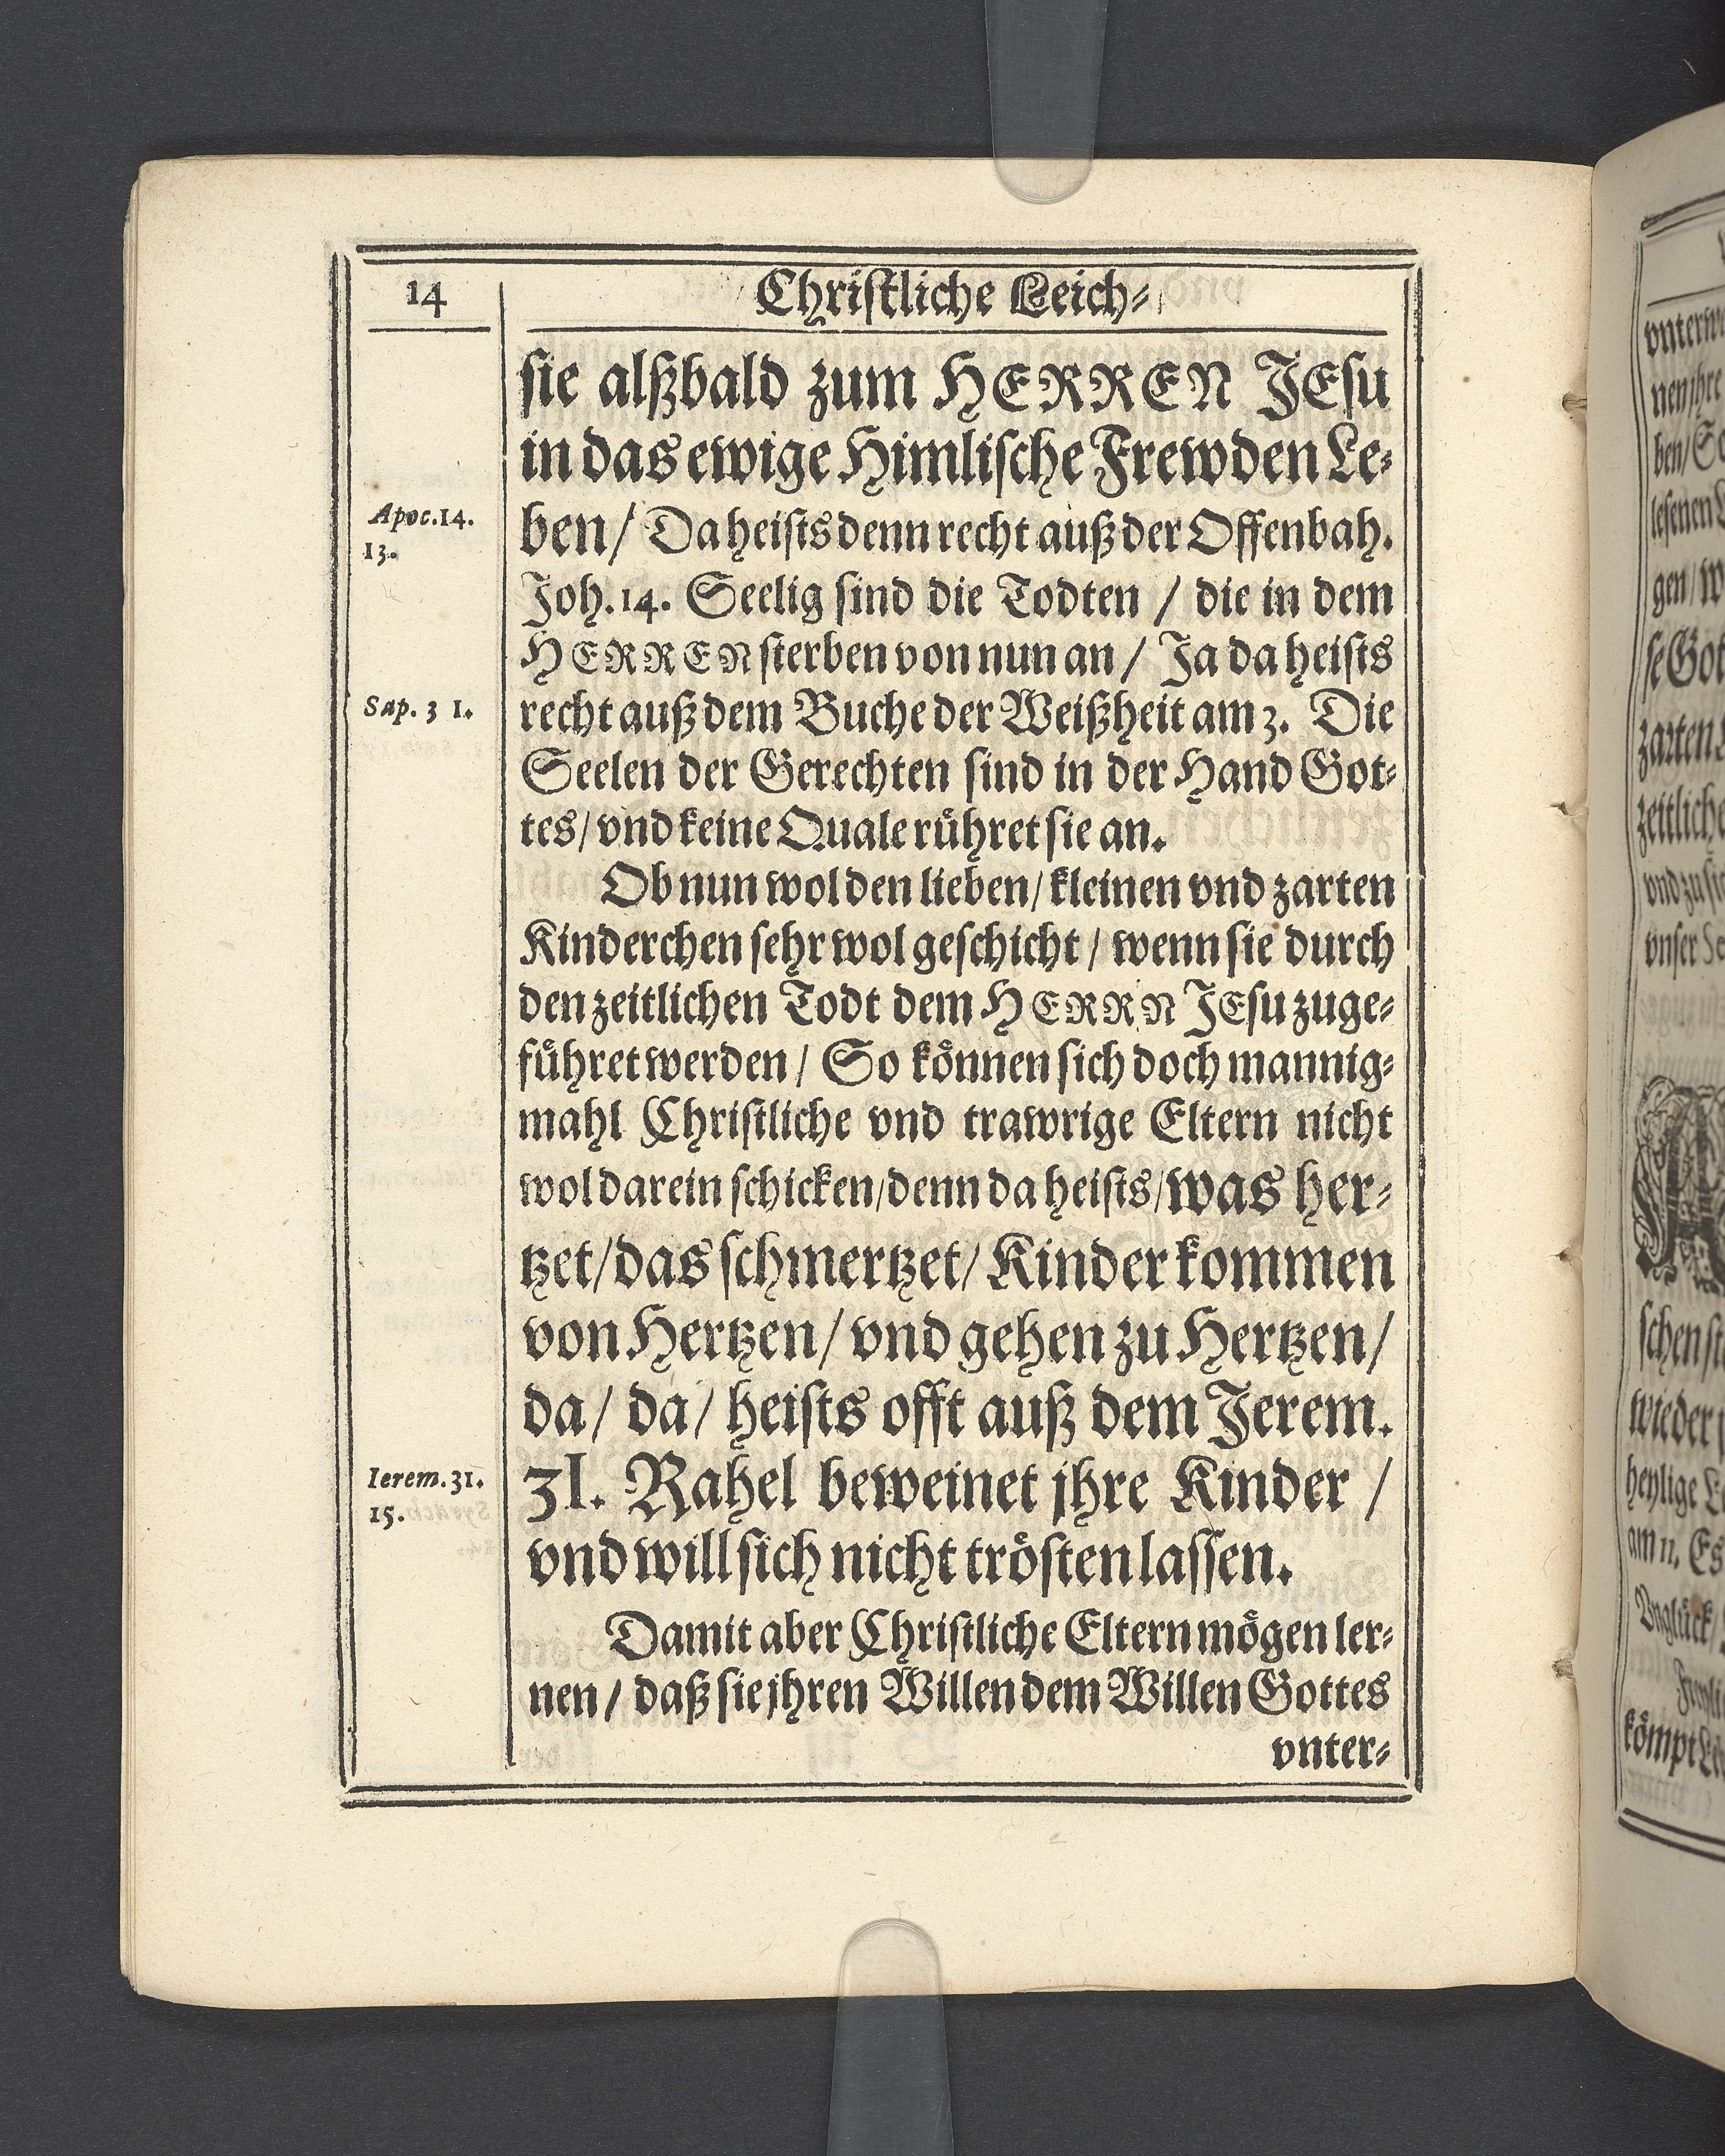 14
Christliche Leich⸗
sie alßbald zum HERREN JEsu
in das ewige Himlische Frewden Le⸗
Apoc.14.
13.
ben / Da heists denn recht auß der Offenbah.
Joh. 14. Seelig sind die Todten / die in dem
HERREN sterben von nun an / Ja da heists
Sap. 3 1.
recht auß dem Buche der Weißheit am 3. Die
Seelen der Gerechten sind in der Hand Got⸗
tes / vnd keine Quale rühret sie an.
Ob nun wol den lieben / kleinen vnd zarten
Kinderchen sehr wol geschicht / wenn sie durch
den zeitlichen Todt dem HERRN JEsu zuge⸗
führet werden / So können sich doch mannig⸗
mahl Christliche vnd trawrige Eltern nicht
wol darein schicken / denn da heists / was her⸗
tzet / das schmertzet / Kinder kommen
von Hertzen / vnd gehen zu Hertzen /
da / da / heists offt auß dem Jerem.
Ierem.31.
15.
31. Rahel beweinet jhre Kinder /
vnd will sich nicht trösten lassen.
Damit aber Christliche Eltern mögen ler⸗
nen / daß sie jhren Willen dem Willen Gottes
vnter⸗